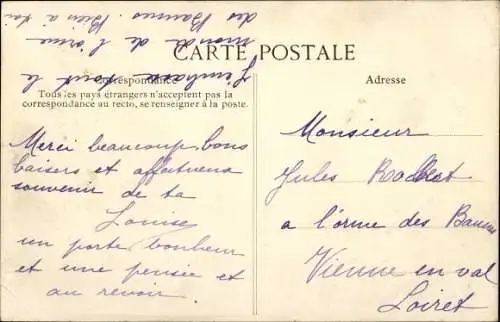 CARTE POSTALE
Correspondance
Tous les pays étrangers n'acceptent pas la
correspondance au recto, se renseigner à la poste.
Merci beaucoup, bons
baisers et affectueux
souvenir de ta
Louise
un porte bonheur
et une pensée et
au revoir
J'embrasse tout le
monde de l'orme
des Baumes. Bien à toi
Adresse
Monsieur
Jules
a l'orme des Baumes
Vienne en val
Loiret